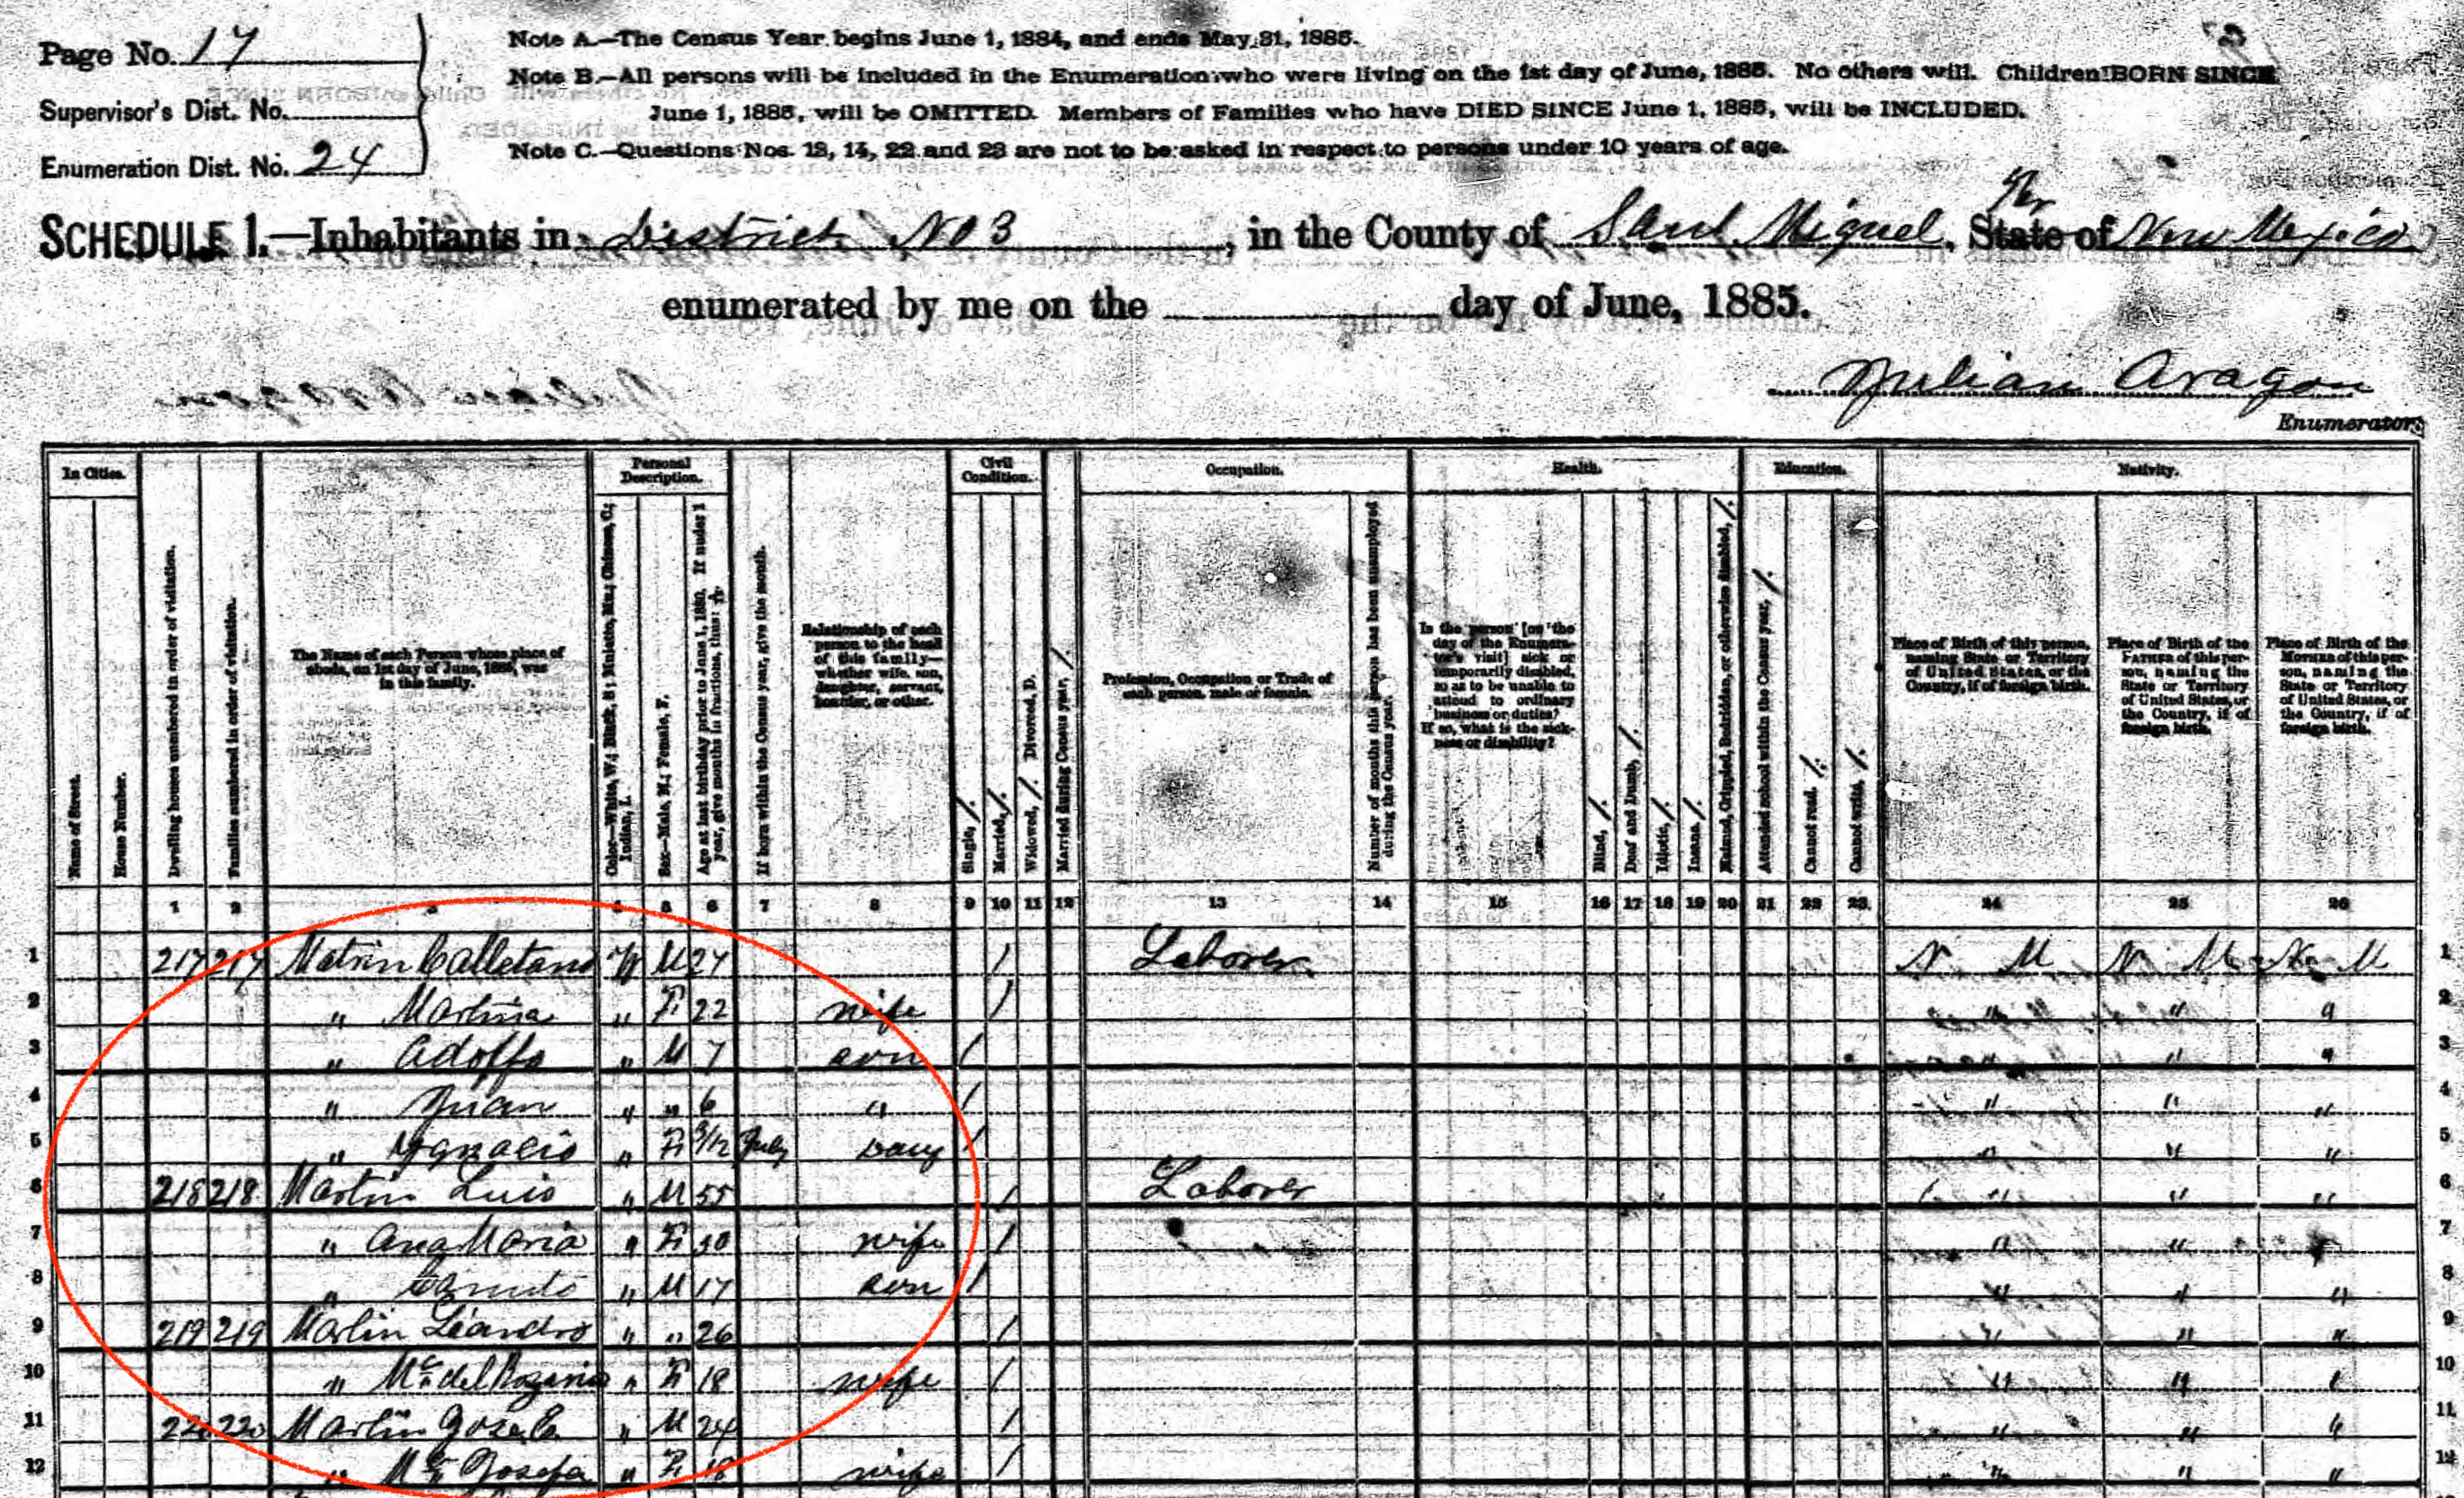 Page No. 17
Supervisor's Dist. No.
Enumeration Dist. No. 24
Note A.—The Census Year begins June 1, 1884, and ends May 31, 1885.
Note B.—All persons will be included in the Enumeration who were living on the 1st day of June, 1885. No others will. Children BORN SINCE
June 1, 1885, will be OMITTED. Members of Families who have DIED SINCE June 1, 1885, will be INCLUDED.
Note C.—Questions Nos. 13, 14, 22 and 23 are not to be asked in respect to persons under 10 years of age.
SCHEDULE 1.—Inhabitants in District No 3, in the County of Sant Miguel, State of New Mexico
enumerated by me on the day of June, 1885.
Julian Aragon
Enumerator.
In Cities.
Personal Description.
Civil Condition.
Occupation.
Health.
Education.
Nativity.
Name of Street.
House Number.
Dwelling houses numbered in order of visitation.
Families numbered in order of visitation.
The Name of each Person whose place of abode, on 1st day of June, 1885, was in this family.
Color—White, W.; Black, B.; Mulatto, Mu.; Chinese, C.; Indian, I.
Sex—Male, M.; Female, F.
Age at last birthday prior to June 1, 1880. If under 1 year, give months in fractions, thus:
If born within the Census year, give the month.
Relationship of each person to the head of this family—whether wife, son, daughter, servant, boarder, or other.
Single, /.
Married, /.
Widowed, /. Divorced, D.
Married during Census year, /.
Profession, Occupation or Trade of each person, male or female.
Number of months this person has been unemployed during the Census year.
Is the person [on the day of the Enumerator's visit] sick or temporarily disabled, so as to be unable to attend to ordinary business or duties? If so, what is the sickness or disability?
Blind, /.
Deaf and Dumb, /.
Idiotic, /.
Insane, /.
Maimed, Crippled, Bedridden, or otherwise disabled, /.
Attended school within the Census year, /.
Cannot read, /.
Cannot write, /.
Place of Birth of this person, naming State or Territory of United States, or the Country, if of foreign birth.
Place of Birth of the FATHER of this person, naming the State or Territory of United States, or the Country, if of foreign birth.
Place of Birth of the MOTHER of this person, naming the State or Territory of United States, or the Country, if of foreign birth.
1 2 3 4 5 6 7 8 9 10 11 12 13 14 15 16 17 18 19 20 21 22 23 24 25 26
1 217 217 Matrin Calletano W M 27 / Laborer N. M. N. M. N. M 1
2 " Martina " F 22 wife / " " " 2
3 " Adolfo " M 7 son / " " " 3
4 " Juan " " 6 " / " " " 4
5 " Ygnacio " F /12 July Daug / " " " 5
6 218 218 Martin Luis " M 55 / Laborer " " " 6
7 " Ana Maria " F 30 wife / " " " 7
8 " " M 17 son / " " " 8
9 219 219 Martin Leandro " " 26 / " " " 9
10 " Ma del Rozario " F 18 wife / " " " 10
11 220 220 Martin Jose " M 24 / " " " 11
12 " Ma Josefa " F 18 wife / " " " 12